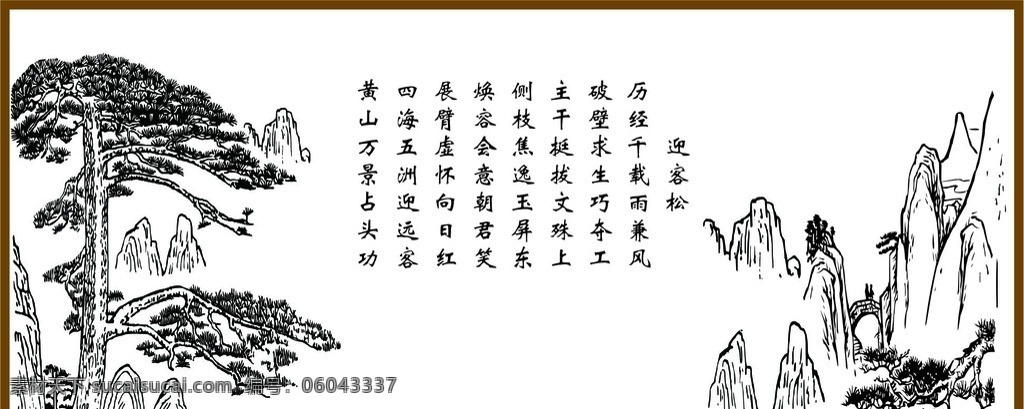 迎客松
历经千载雨兼风
破壁求生巧夺工
主干挺拔文殊上
侧枝焦逸玉屏东
焕容会意朝君笑
展臂虚怀向日红
四海五洲迎远客
黄山万景占头功
素材天下 sucaisucai.com 编号：06043337